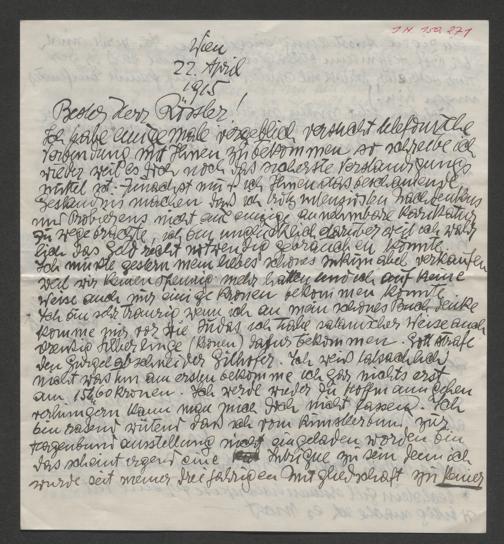 IN 159.271
Wien
22. April
1915
Bester Herr Rössler!
Ich habe einige male vergeblich versucht telefonische
Verbindung mit Ihnen zu bekommen so schreibe ich
wieder weil es doch noch das sicherste Verständigungs
mittel ist. Zunächst muss ich Ihnen das beschämende
Geständnis machen dass ich trotz intensivsten Nachdenkens
und Probierens nicht eine einzige annehmbare Karikatur
zu wege brachte, ich bin unglücklich darüber weil ich wahr
lich das Geld recht notwendig gebrauchen könnte.
Ich musste gestern mein liebes schönes verkaufen
weil wir keinen Pfennig mehr hatten und ich auf keine
Weise auch nur einige Kronen bekommen konnte.
Ich bin sehr traurig wenn ich an mein schönes Buch denke
komme mir vor wie Judas ich habe satanischer Weise auch
dreissig Silberlinge (Kronen) dafür bekommen. Gott strafe
den Gurgelabschneider Gilhofer. Ich weiss tatsächlich
nicht was nun am ersten bekomme ich gar nichts erst
am 15. 60 Kronen. Ich werde wieder zu Hoffmann gehen
verhungern kann man mich doch nicht lassen. Ich
bin rasend wütend dass ich vom Künstlerbund zur
ausstellung nicht eingeladen worden bin
das scheint irgend eine Intrigue zu sein denn ich
wurde seit meiner dreijährigen Mitgliedschaft zu keiner